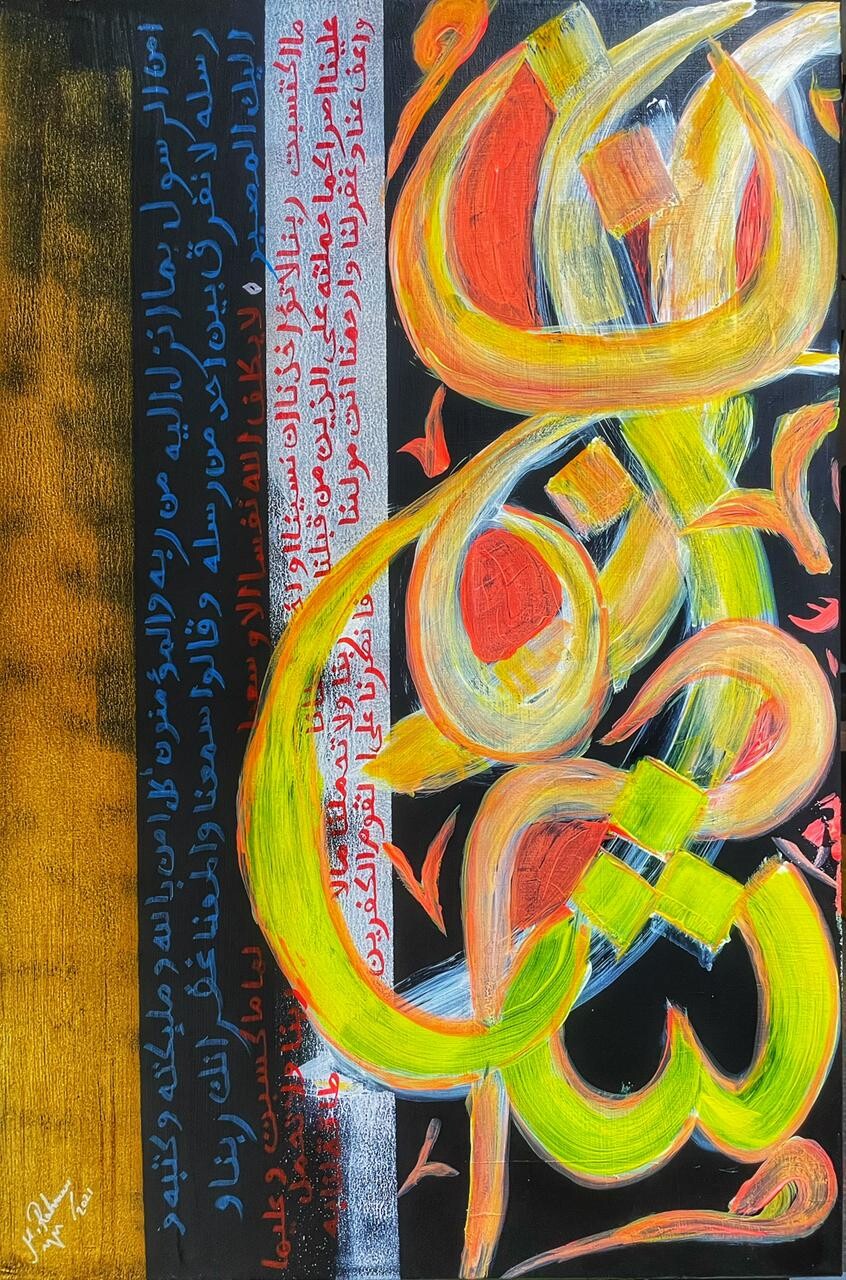 امن الرسول بما انزل اليه من ربه والمؤمنون كل امن بالله و مليكته وكتبه و
رسله لا نفرق بين احد من رسله وقالوا سمعنا واطعنا غفرانك ربنا و
اليك المصير لا يكلف الله نفسا الا وسعها لها ما كسبت و عليها
ما اكتسبت ربنا لا تؤاخذنا ان نسينا او ربنا ولا تحمل
علينا اصرا كما حملته على الذين من قبلنا ربنا ولا تحملنا مالا طاقة لنا به
واعف عنا و غفرلنا وارحمنا انت مولينا فا نظرنا على القوم الكفرين
2021